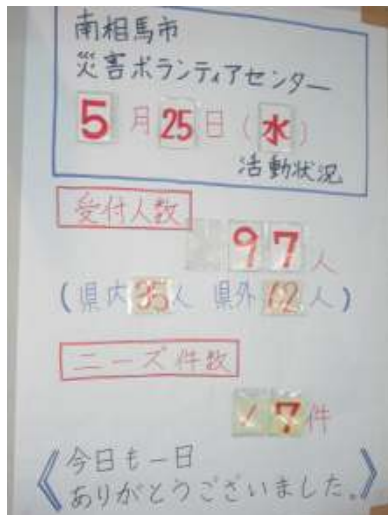 南相馬市
災害ボランティアセンター
5月25日(水)
活動状況
受付人数
97人
(県内35人 県外62人)
ニーズ件数
7件
《今日も一日
ありがとうございました。》